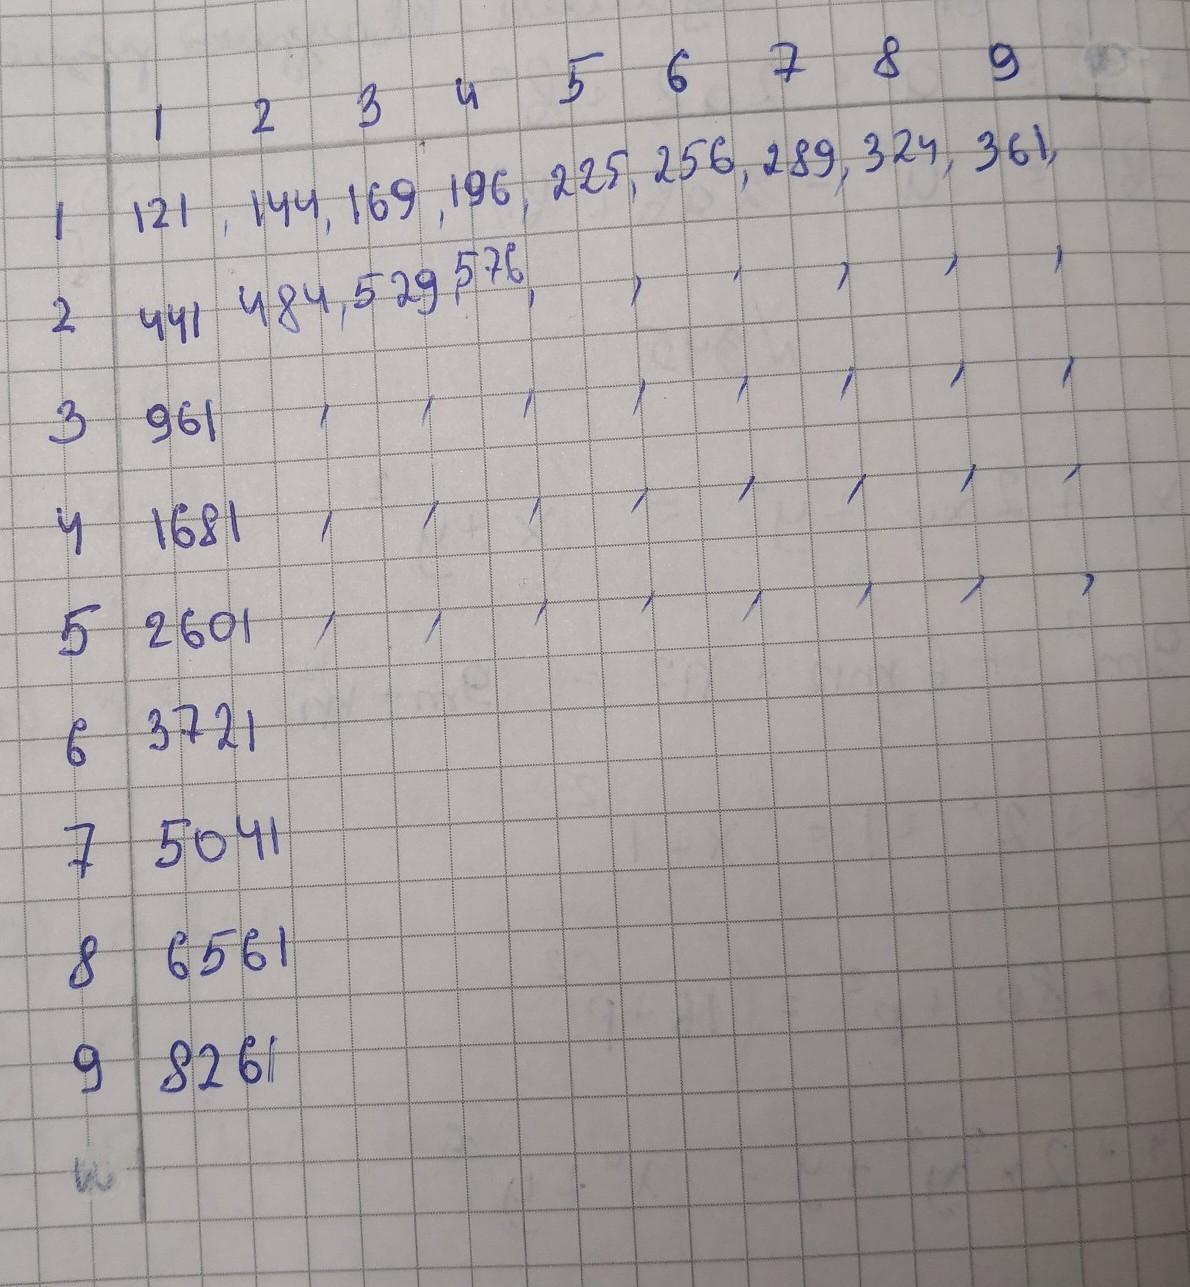 1 2 3 4 5 6 7 8 9
1 121, 144, 169, 196, 225, 256, 289, 324, 361,
2 441 484, 529, 576, , , , , ,
3 961 , , , , , , , ,
4 1681 , , , , , , , ,
5 2601 , , , , , , , ,
6 3721
7 5041
8 6561
9 8261